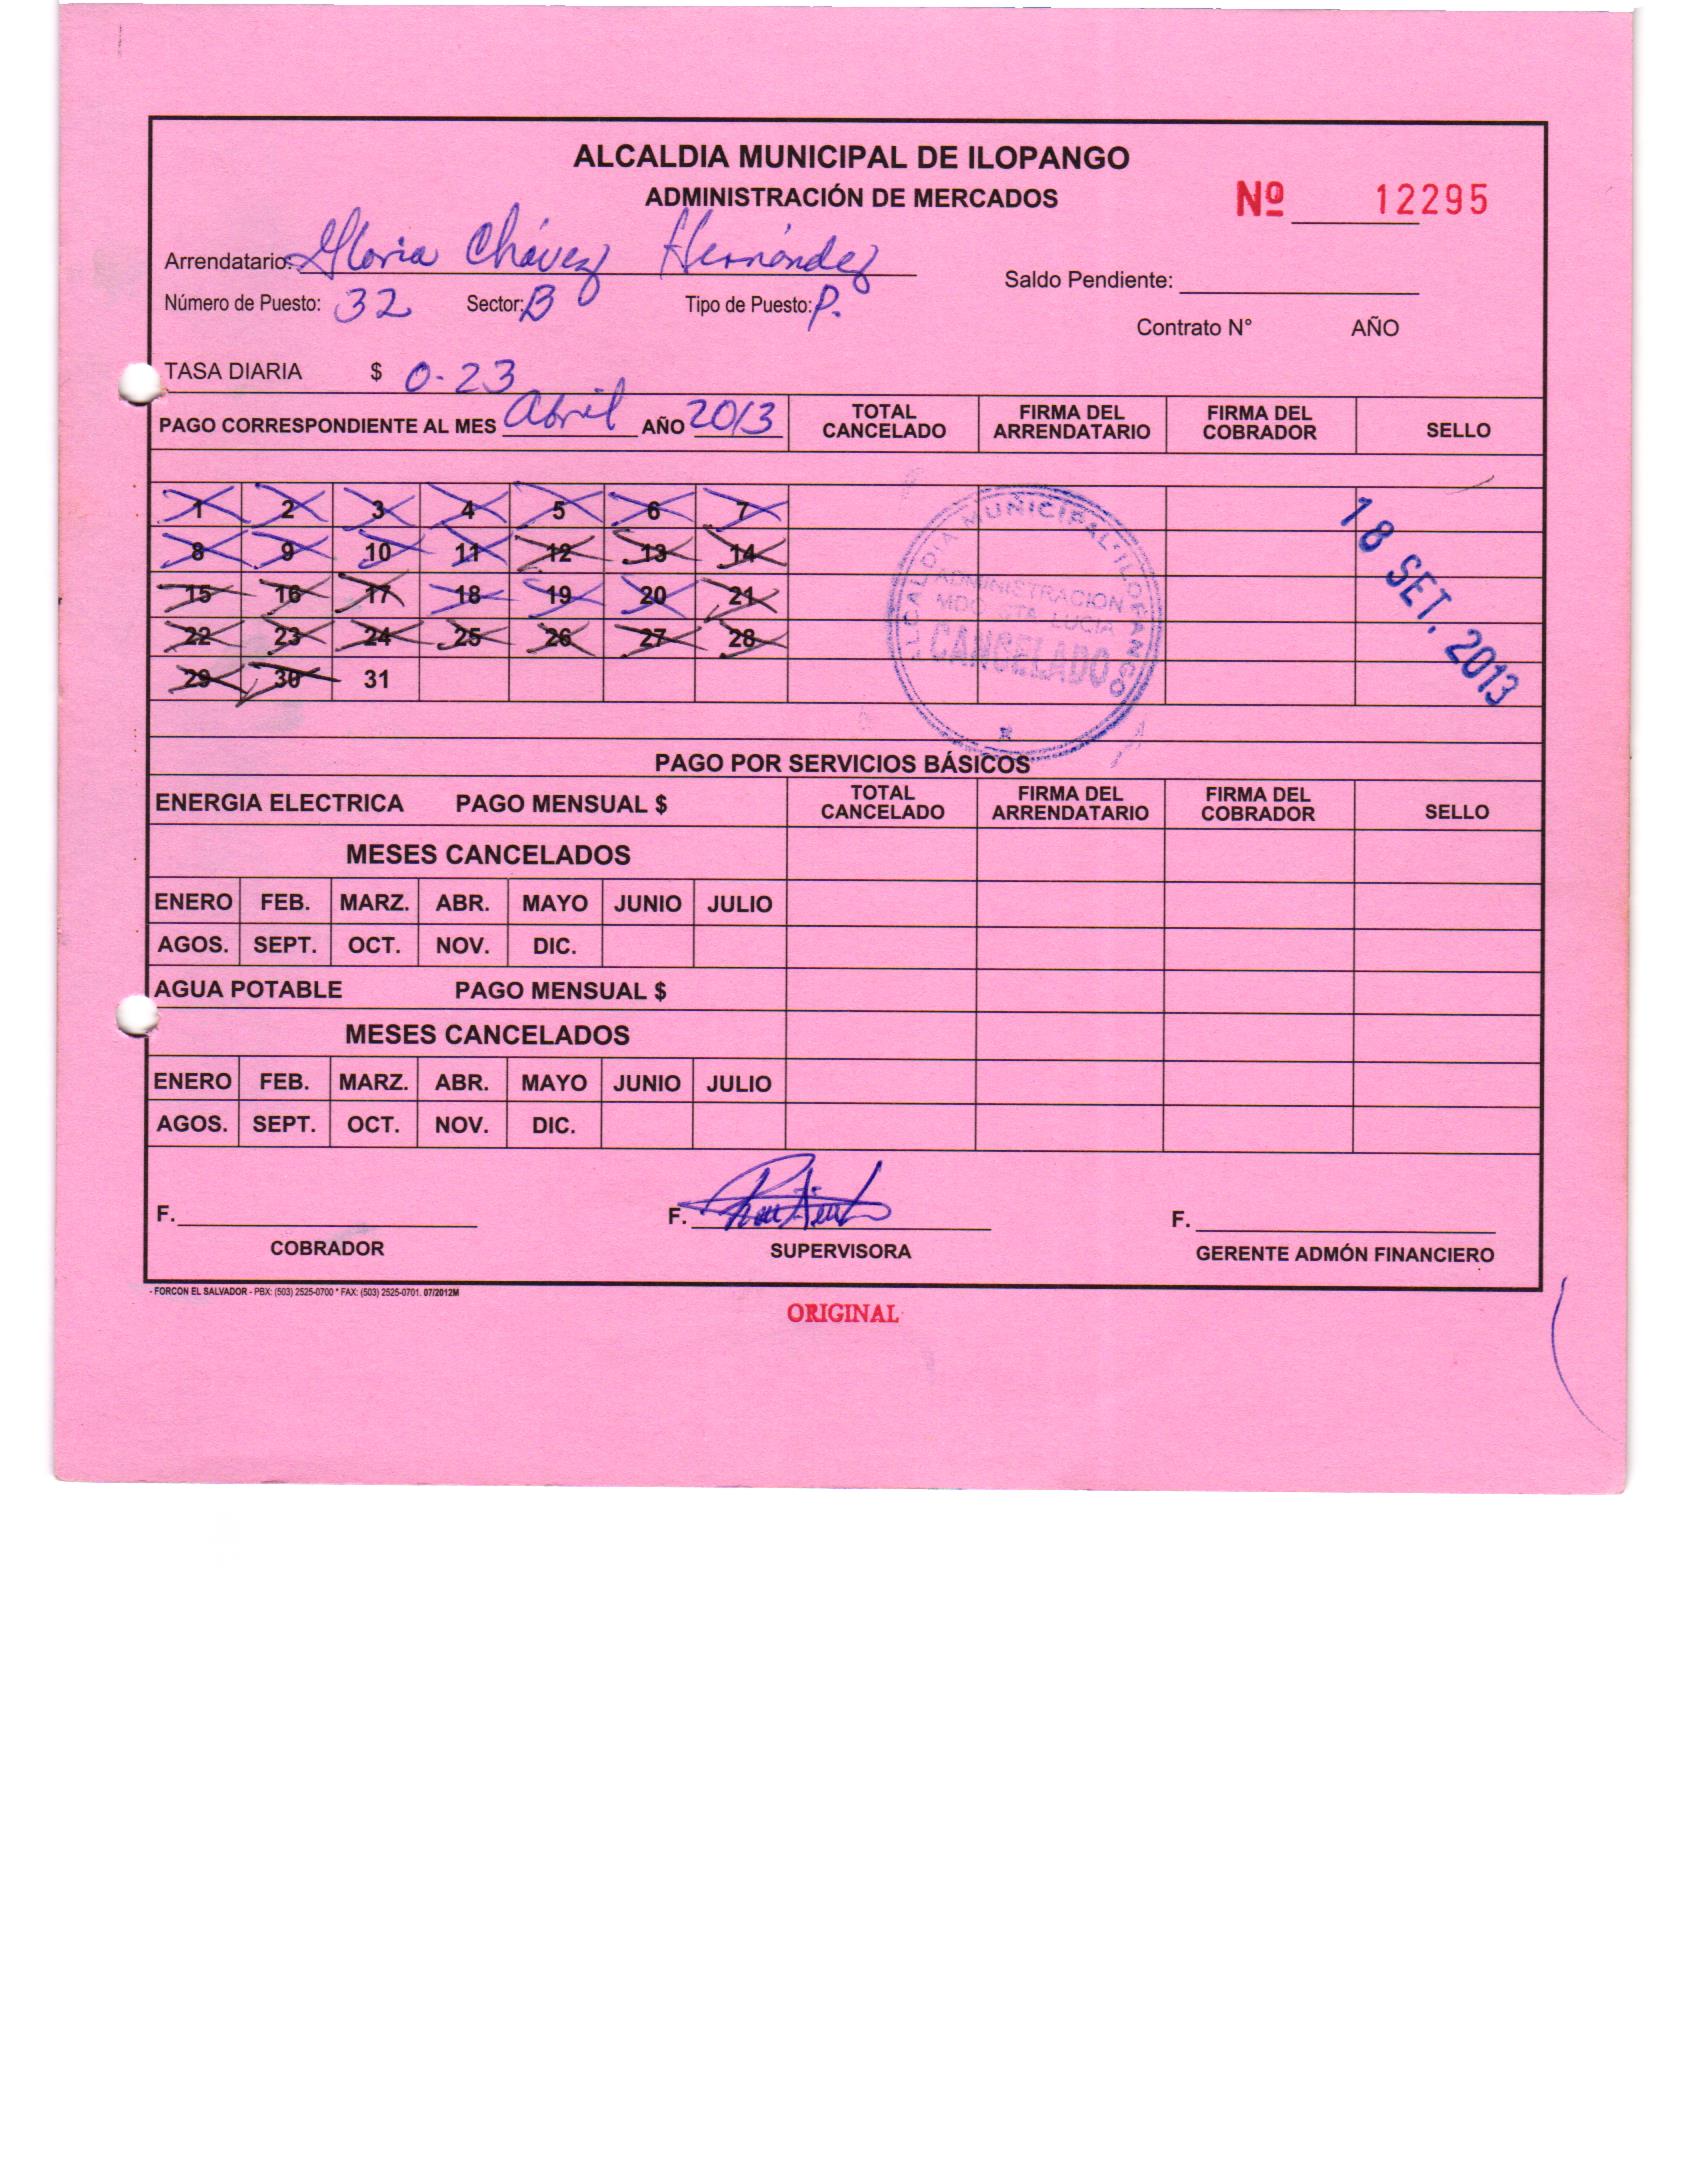 ALCALDIA MUNICIPAL DE ILOPANGO
ADMINISTRACIÓN DE MERCADOS
Nº 12295
Arrendatario: Gloria Chávez Hernández
Saldo Pendiente:
Número de Puesto: 32 Sector: B Tipo de Puesto: P.
Contrato N° AÑO
TASA DIARIA $ 0.23
PAGO CORRESPONDIENTE AL MES Abril AÑO 2013 TOTAL CANCELADO FIRMA DEL ARRENDATARIO FIRMA DEL COBRADOR SELLO
1 2 3 4 5 6 7
8 9 10 11 12 13 14
15 16 17 18 19 20 21
22 23 24 25 26 27 28
29 30 31
ALCALDIA MUNICIPAL ILOPANGO
ADMINISTRACION
MDO. STA. LUCIA
CANCELADO
18 SET. 2013
PAGO POR SERVICIOS BÁSICOS
ENERGIA ELECTRICA PAGO MENSUAL $ TOTAL CANCELADO FIRMA DEL ARRENDATARIO FIRMA DEL COBRADOR SELLO
MESES CANCELADOS
ENERO FEB. MARZ. ABR. MAYO JUNIO JULIO
AGOS. SEPT. OCT. NOV. DIC.
AGUA POTABLE PAGO MENSUAL $
MESES CANCELADOS
ENERO FEB. MARZ. ABR. MAYO JUNIO JULIO
AGOS. SEPT. OCT. NOV. DIC.
F. F. F.
COBRADOR SUPERVISORA GERENTE ADMÓN FINANCIERO
- FORCON EL SALVADOR - PBX: (503) 2525-0700 * FAX: (503) 2525-0701. 07/2012M
ORIGINAL